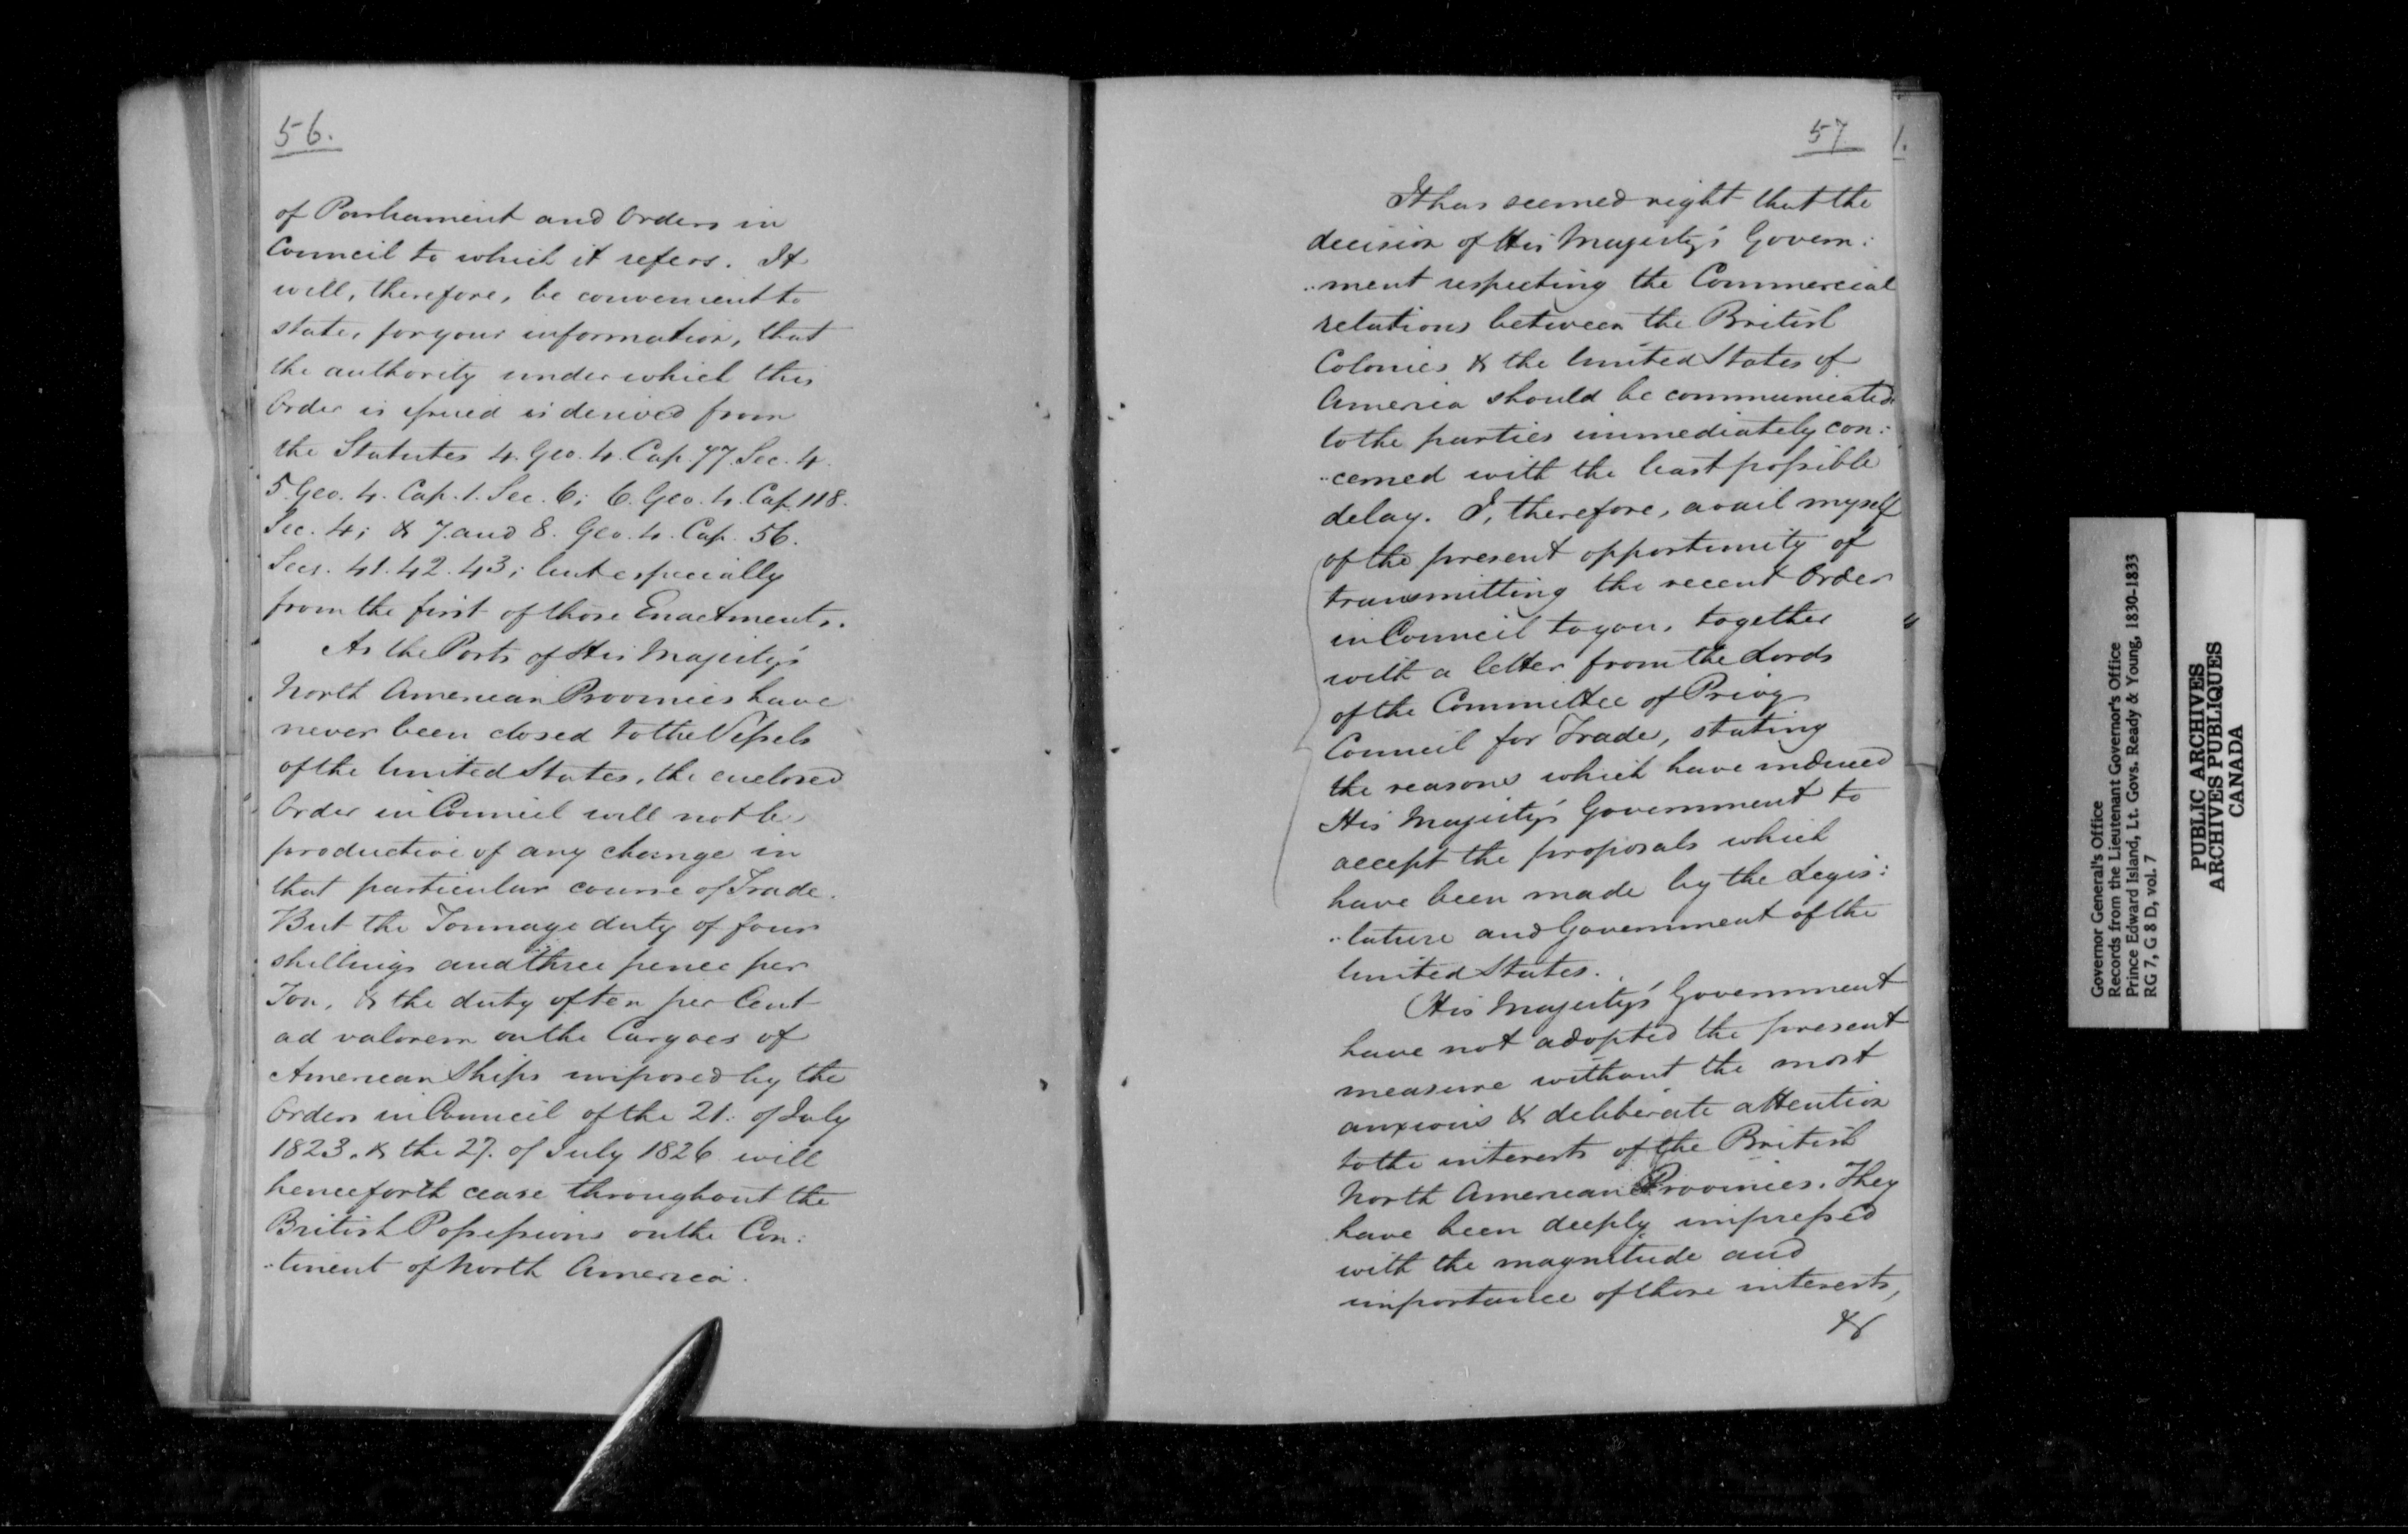 56.
of Parliament and Orders in
Council to which it refers. It
will, therefore, be convenient to
state, for your information, that
the authority under which this
Order is issued is derived from
the Statutes 4. Geo. 4. Cap. 77. Sec. 4.
5 Geo. 4. Cap. 1. Sec. 6; 6. Geo. 4. Cap 118.
Sec. 4; & 7. and 8. Geo. 4. Cap. 56.
Secs. 41. 42. 43; but especially
from the first of those Enactments.
As the Ports of His Majesty's
North American Provinces have
never been closed to the Vessels
of the United States, the enclosed
Order in Council will not be
productive of any change in
that particular course of Trade.
But the Tonnage duty of four
shillings and three pence per
Ton, & the duty of ten per Cent
ad valorem on the Cargoes of
American Ships imposed by the
Orders in Council of the 21. of July
1823. & the 27. of July 1826 will
henceforth cease throughout the
British Possessions on the Con:
:tinent of North America.
57
It has seemed right that the
decision of His Majesty's Govern:
:ment respecting the Commercial
relations between the British
Colonies & the United States of
America should be communicated
to the parties immediately con:
:cerned with the least possible
delay. I, therefore, avail myself
of the present opportunity of
transmitting the recent Order
in Council to you, together
with a letter from the Lords
of the Committee of Privy
Council for Trade, stating
the reasons which have induced
His Majesty's Government to
accept the proposals which
have been made by the Legis:
:lature and Government of the
United States.
His Majesty's Government
have not adopted the present
measure without the most
anxious & deliberate attention
to the interests of the British
North American Provinces. They
have been deeply impressed
with the magnitude and
importance of those interests,
&
1.
Governor General's Office
Records from the Lieutenant Governor's Office
Prince Edward Island, Lt. Govs. Ready & Young, 1830-1833
RG 7, G 8 D, vol. 7
PUBLIC ARCHIVES
ARCHIVES PUBLIQUES
CANADA